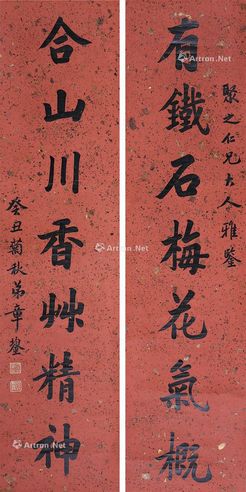 聚之仁兄大人雅鑒
有鐵石梅花氣概
合山川香艸精神
癸丑菊秋弟章鋆
Artron.Net
Artron.Net
Artron.Net
Artron.Net
Artron.Net
Artron.Net